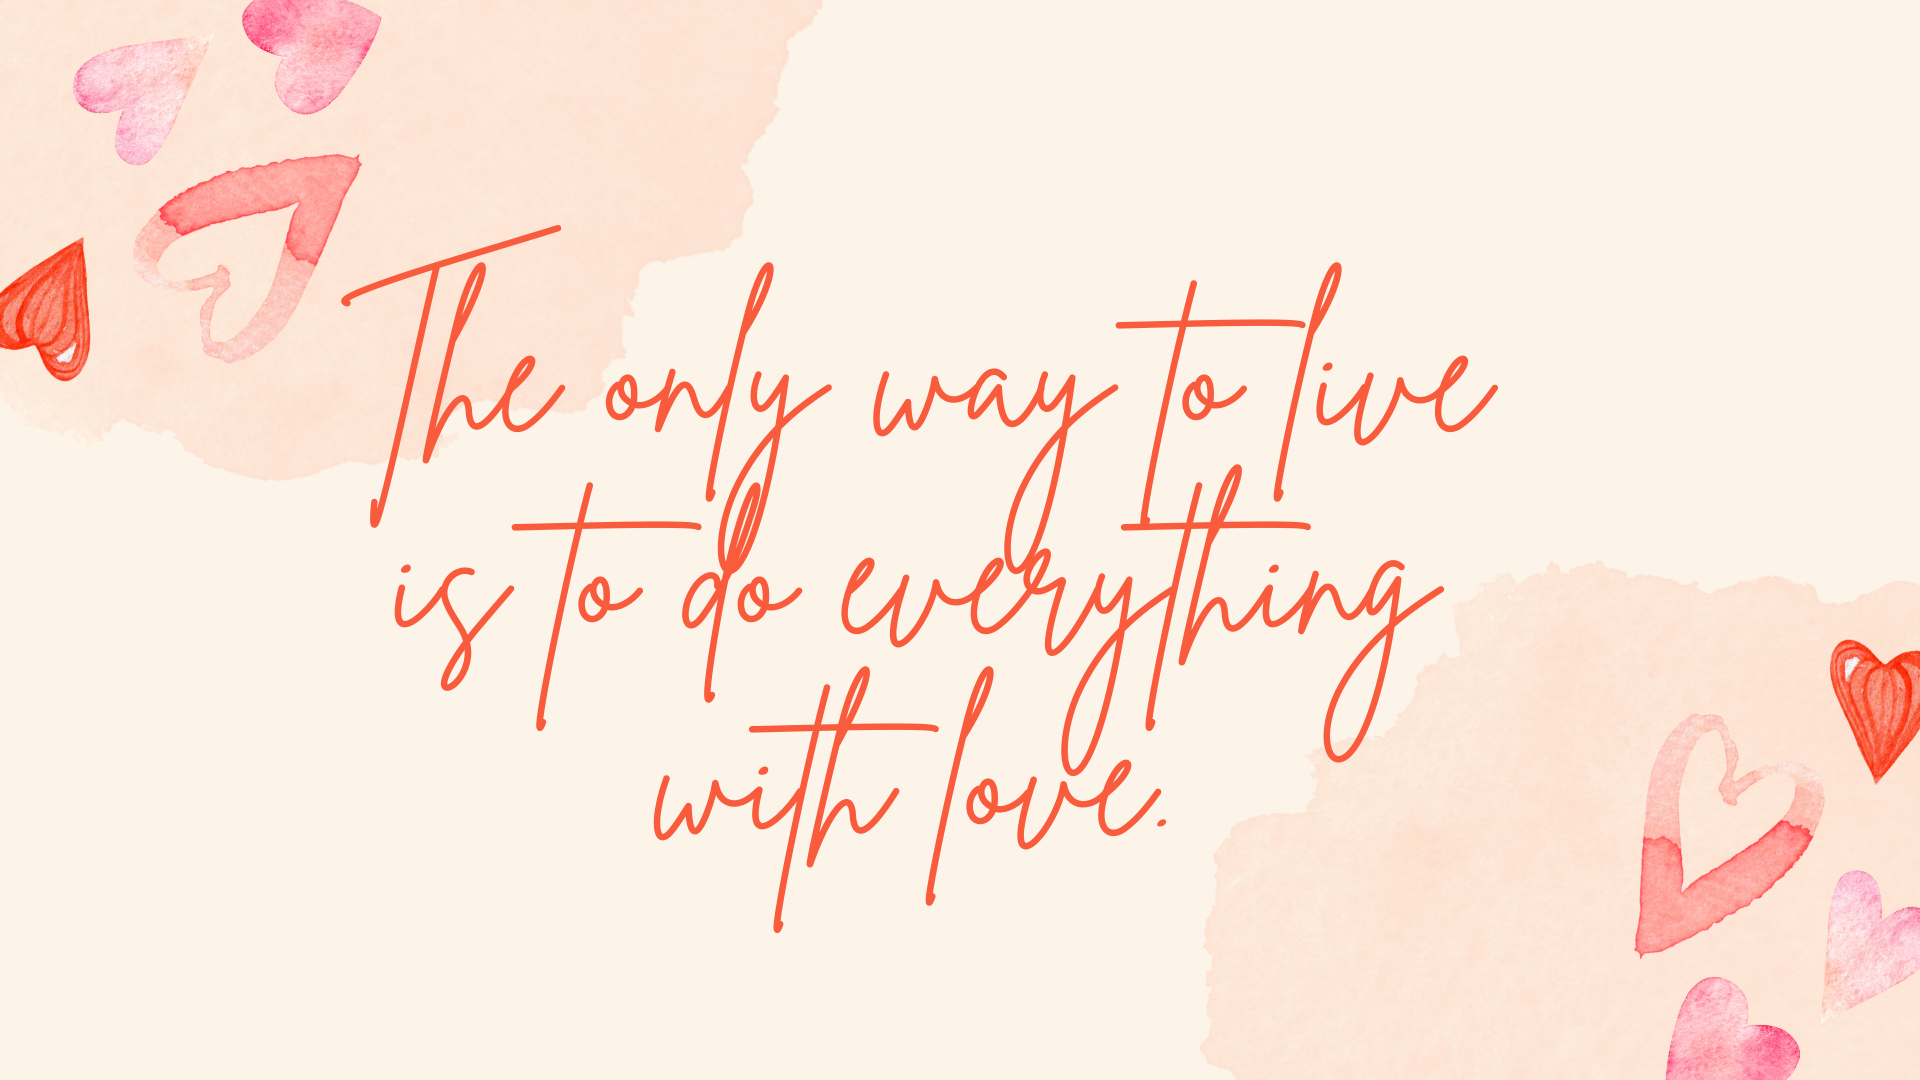 The only way to live
is to do everything
with love.